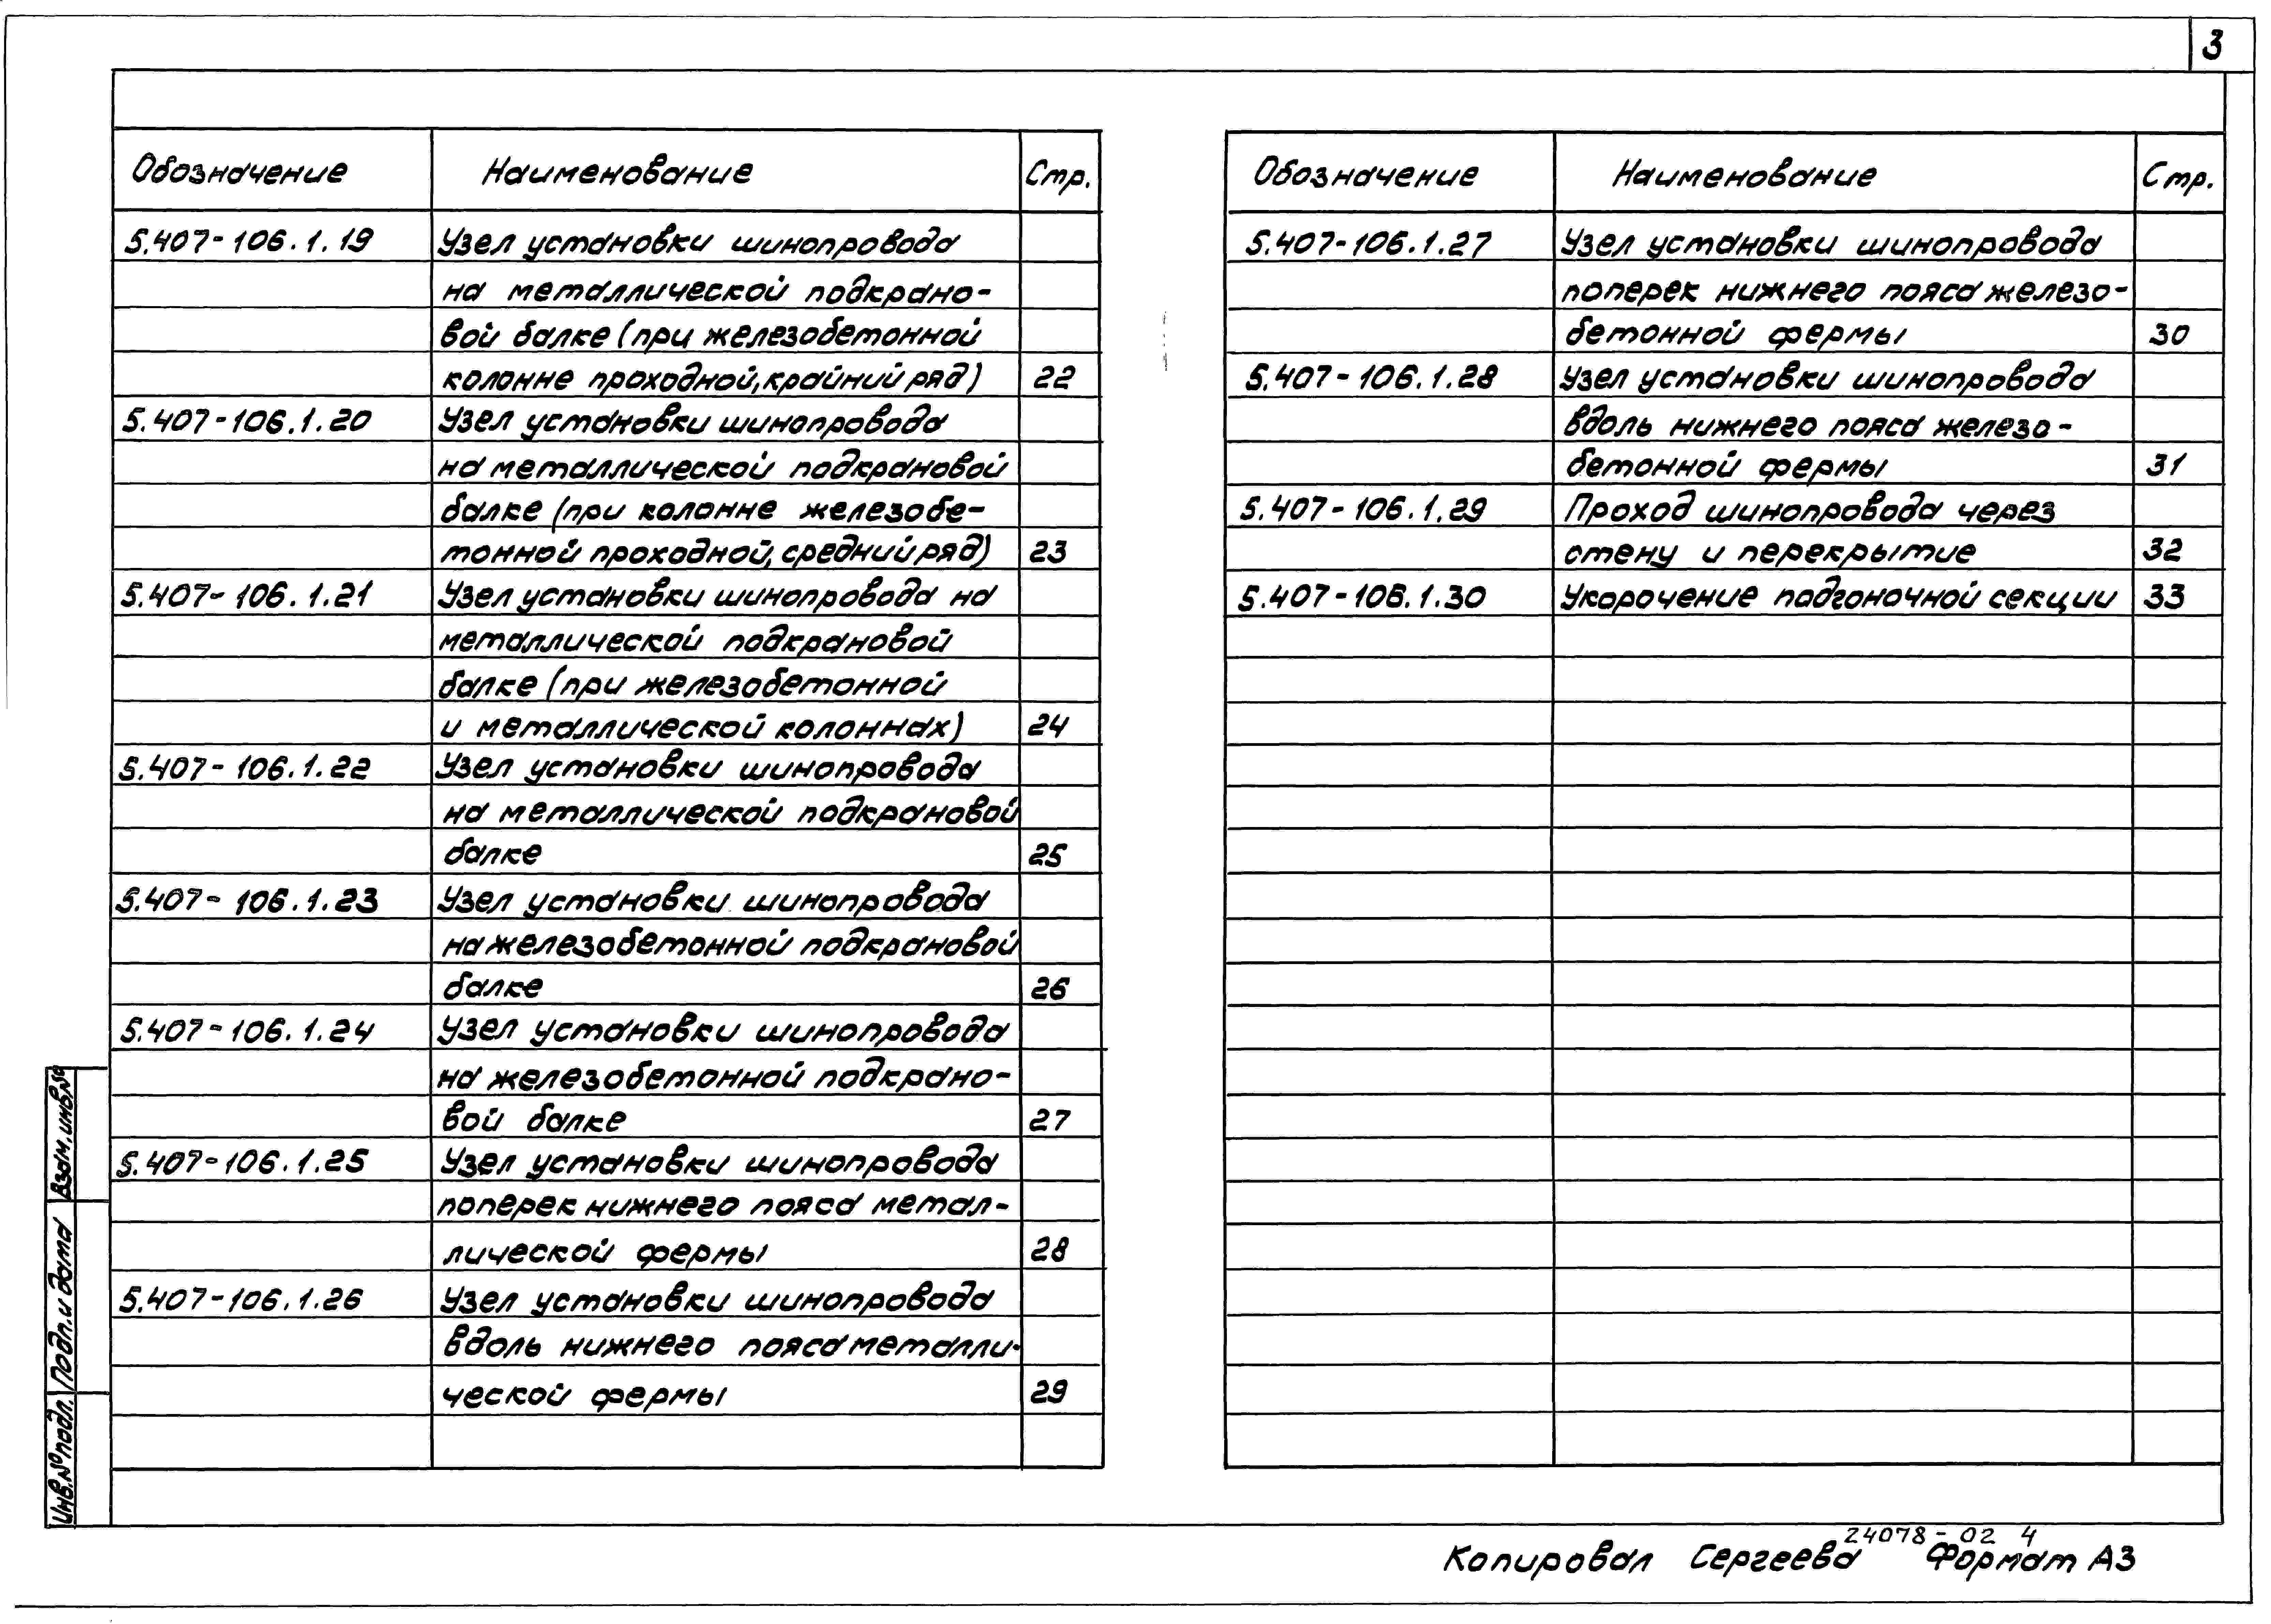 3
Обозначение Наименование Стр.
5.407-106.1.19 Узел установки шинопровода
на металлической подкрано-
вой балке (при железобетонной
колонне проходной, крайний ряд) 22
5.407-106.1.20 Узел установки шинопровода
на металлической подкрановой
балке (при колонне железобе-
тонной проходной, средний ряд) 23
5.407-106.1.21 Узел установки шинопровода на
металлической подкрановой
балке (при железобетонной
и металлической колоннах) 24
5.407-106.1.22 Узел установки шинопровода
на металлической подкрановой
балке 25
5.407-106.1.23 Узел установки шинопровода
на железобетонной подкрановой
балке 26
5.407-106.1.24 Узел установки шинопровода
на железобетонной подкрано-
вой балке 27
5.407-106.1.25 Узел установки шинопровода
поперек нижнего пояса метал-
лической фермы 28
5.407-106.1.26 Узел установки шинопровода
вдоль нижнего пояса металли-
ческой фермы 29
Обозначение Наименование Стр.
5.407-106.1.27 Узел установки шинопровода
поперек нижнего пояса железо-
бетонной фермы 30
5.407-106.1.28 Узел установки шинопровода
вдоль нижнего пояса железо-
бетонной фермы 31
5.407-106.1.29 Проход шинопровода через
стену и перекрытие 32
5.407-106.1.30 Укорочение подгоночной секции 33
Взам. инв.№
Подп. и дата
Инв.№ подл.
24078-02 4
Копировал Сергеева Формат А3